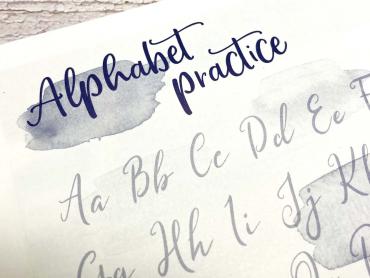 Alphabet
practice
Aa Bb Cc Dd Ee F
Gg Hh Ii Jj Kk